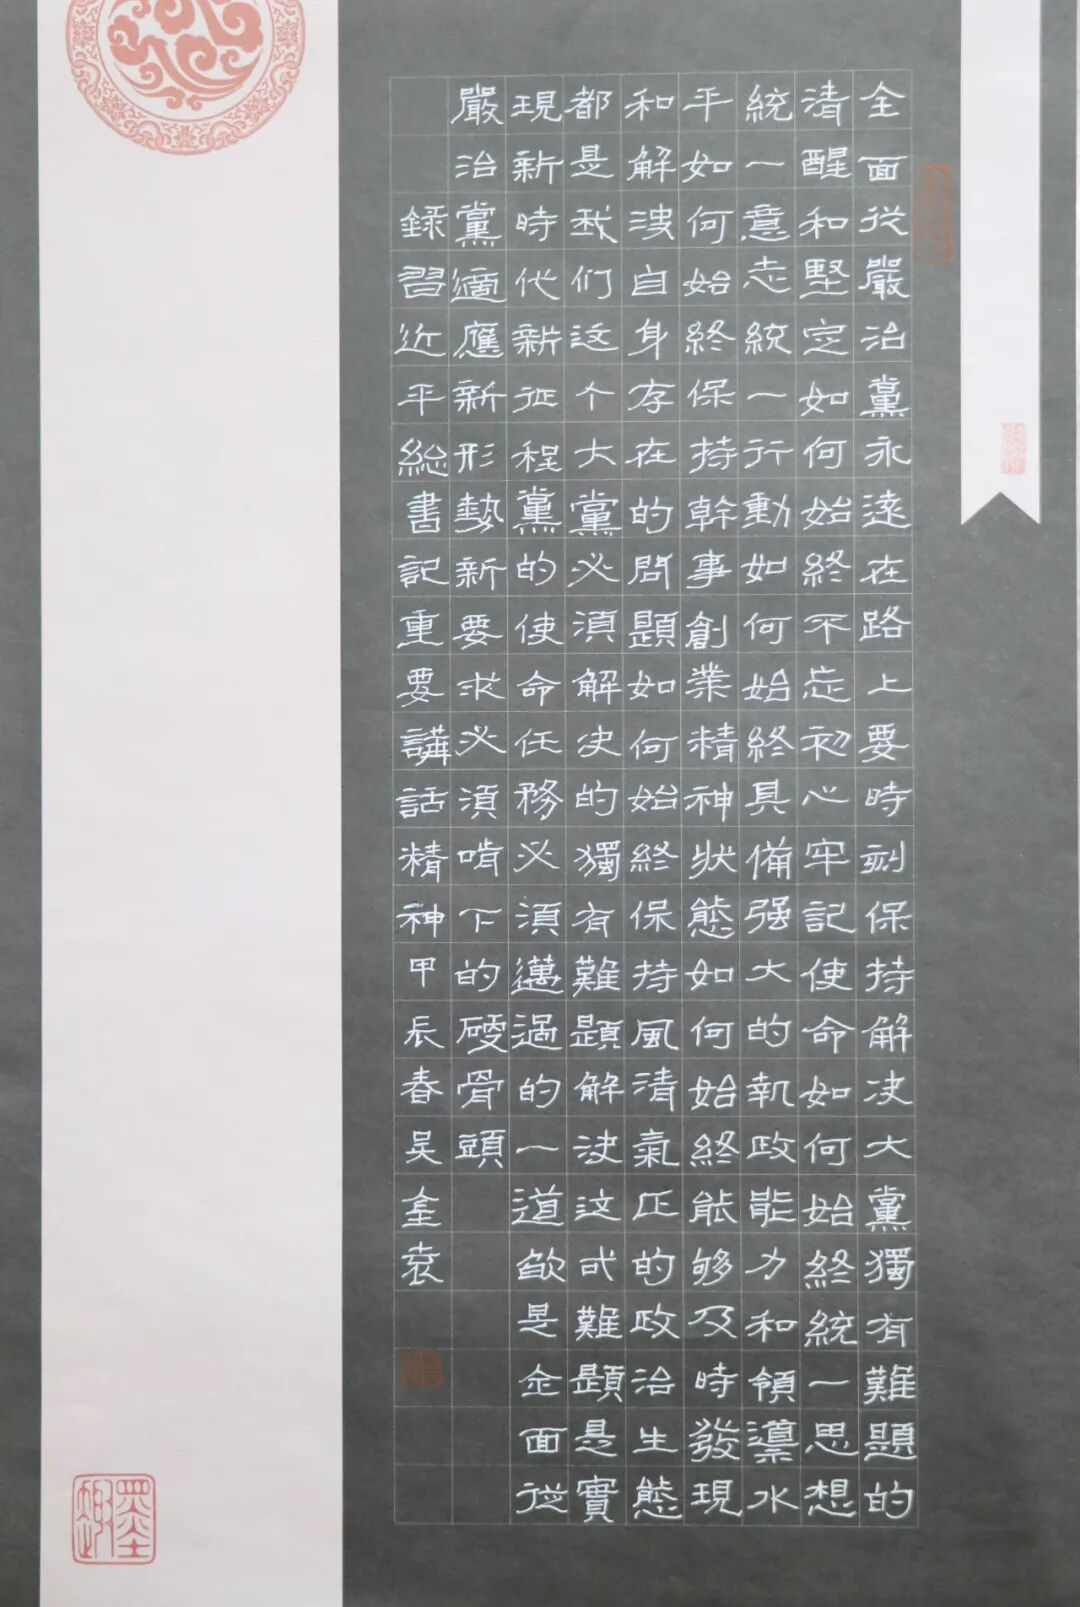 全面從嚴治黨永遠在路上要時刻保持解决大黨獨有難題的
清醒和堅定如何始終不忘初心牢記使命如何始終統一思想
統一意志統一行動如何始終具備强大的執政能力和領導水
平如何始終保持幹事創業精神狀態如何始終能够及時發現
和解决自身存在的問題如何始終保持風清氣正的政治生態
都是我们这个大黨必須解决的獨有難題解决这難題是實
現新時代新征程黨的使命任務必須邁過的一道欿是全面從
嚴治黨適應新形勢新要求必須啃下的硬骨頭
録習近平總書記重要講話精神甲辰春吴金袁
墨趣